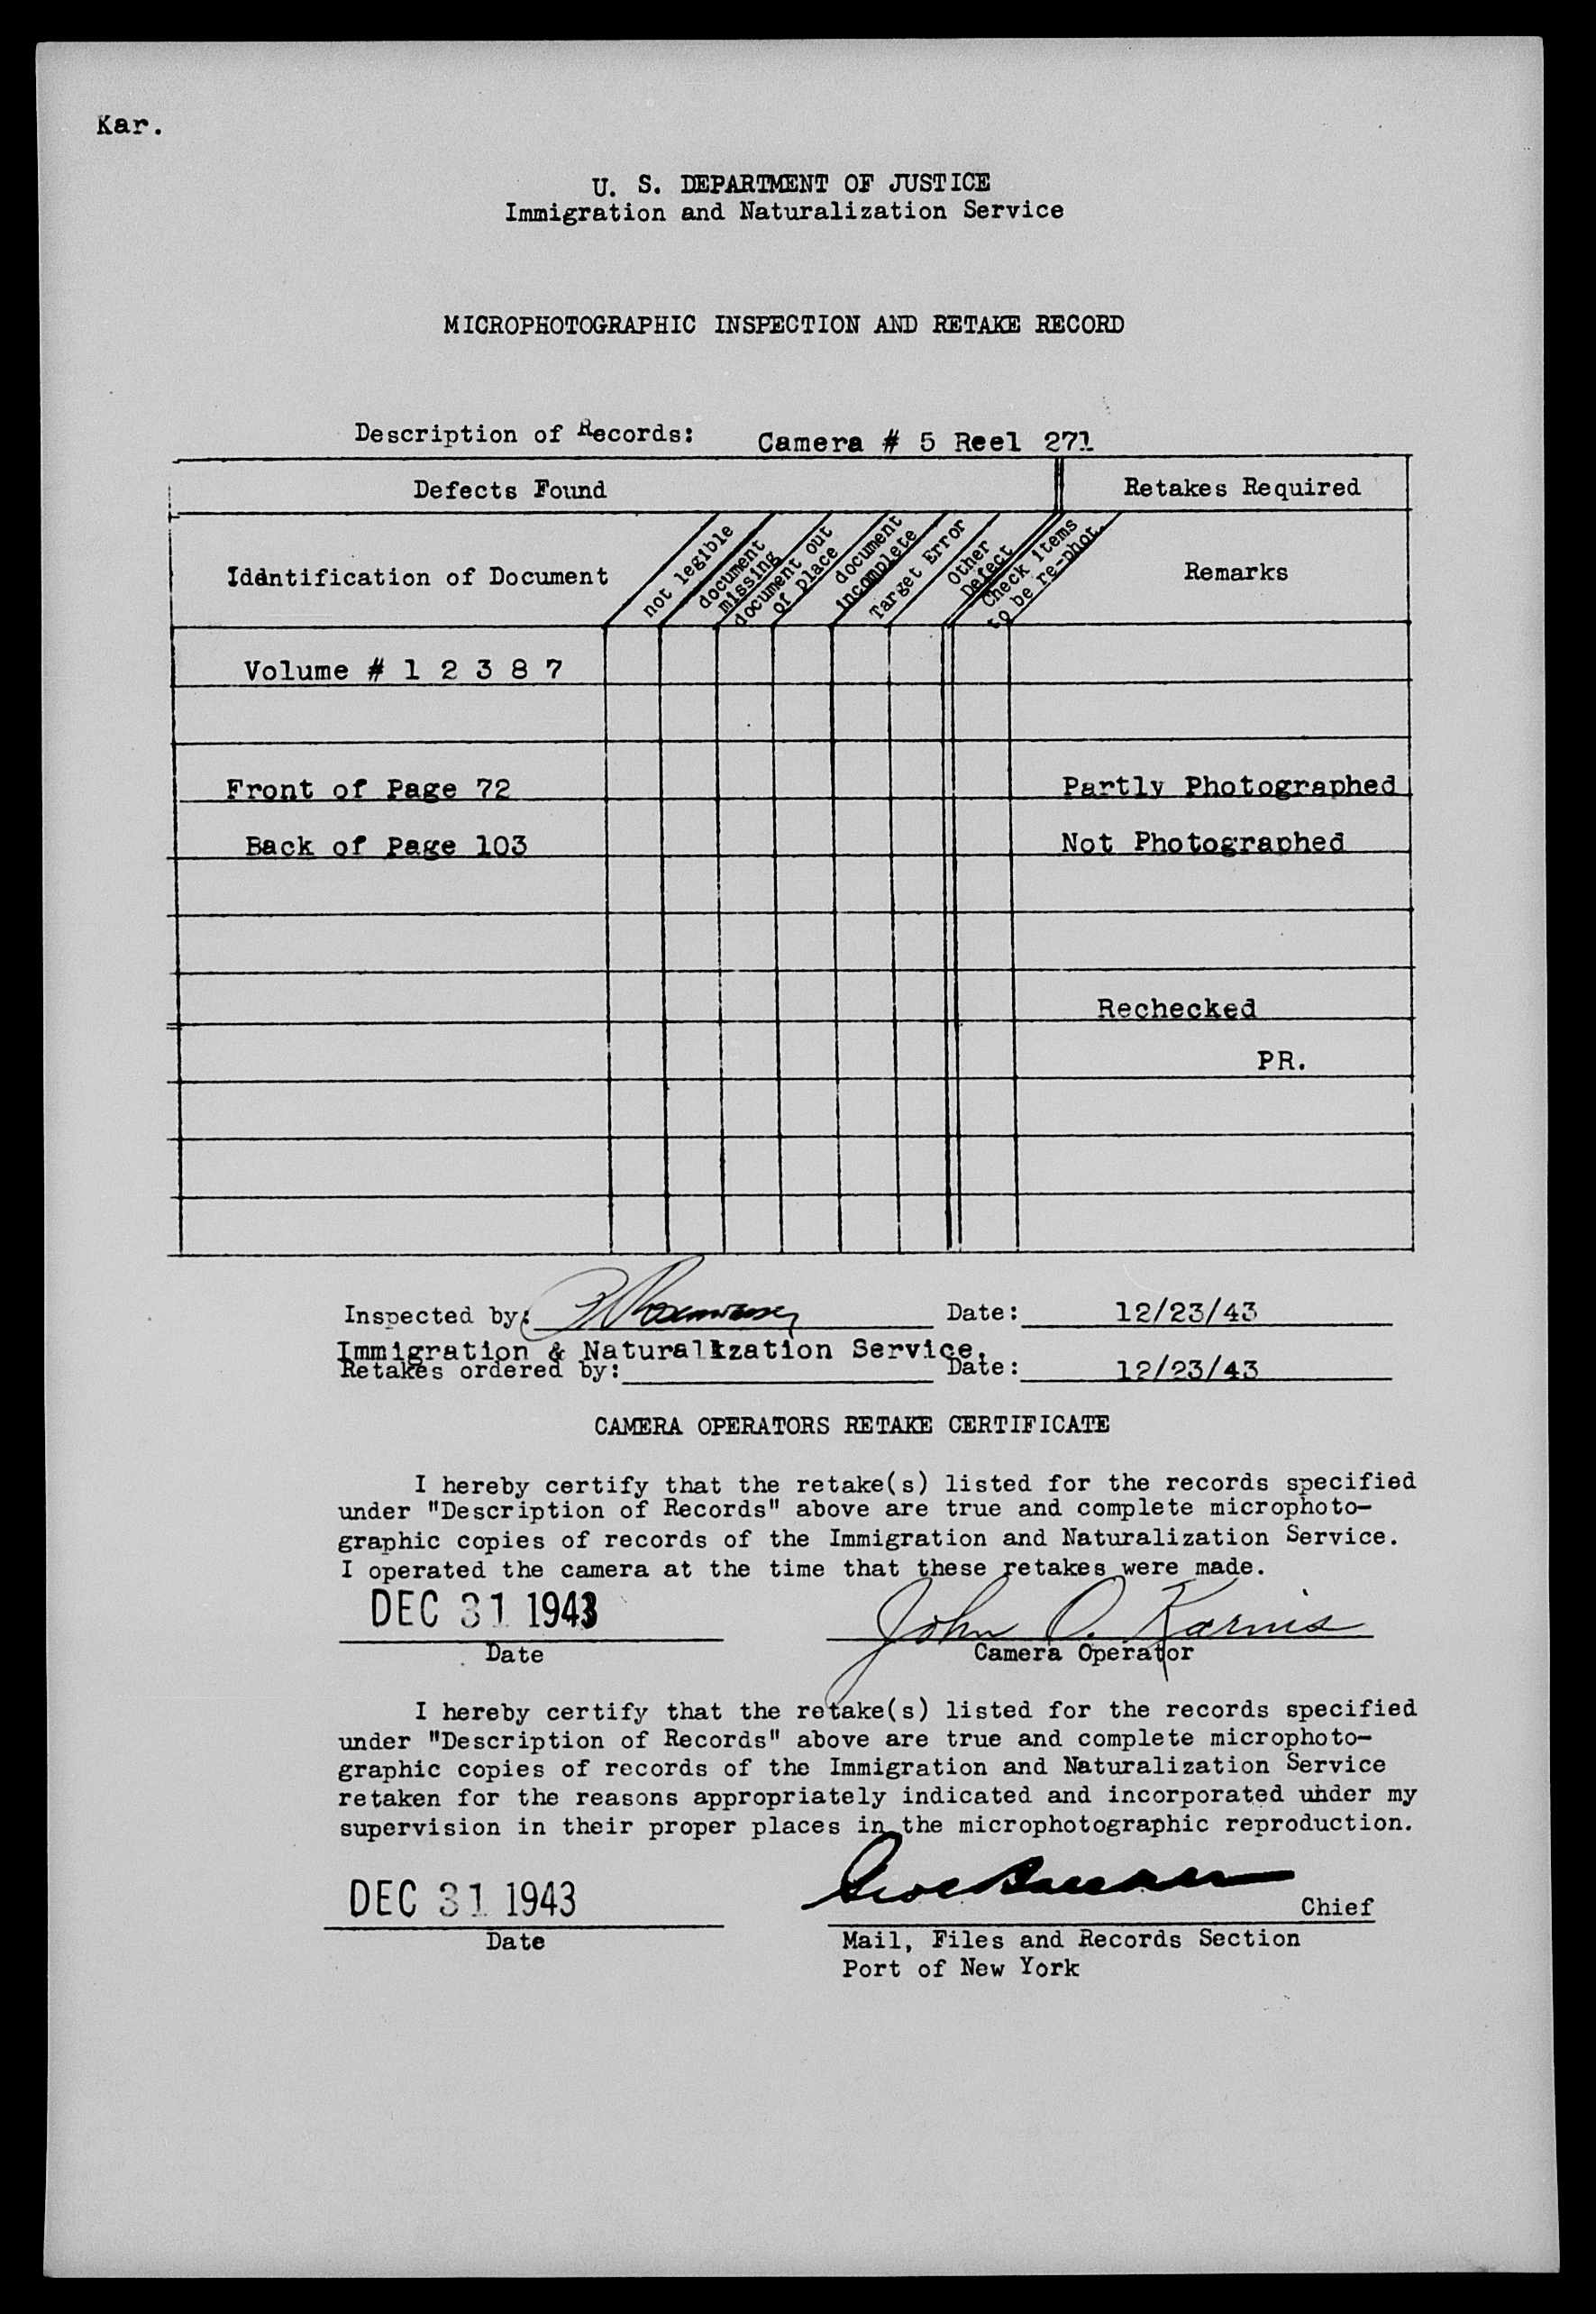 Kar.
U. S. DEPARTMENT OF JUSTICE
Immigration and Naturalization Service
MICROPHOTOGRAPHIC INSPECTION AND RETAKE RECORD
Description of Records: Camera # 5 Reel 271
Defects Found Retakes Required
Identification of Document
not legible
document
missing
document out
of place
document
incomplete
Target Error
Other
Defect
Check items
to be re-phot.
Remarks
Volume # 1 2 3 8 7
Front of Page 72 Partly Photographed
Back of Page 103 Not Photographed
Rechecked
PR.
Inspected by: Date: 12/23/43
Immigration & Naturalization Service.
Retakes ordered by: Date: 12/23/43
CAMERA OPERATORS RETAKE CERTIFICATE
I hereby certify that the retake(s) listed for the records specified
under "Description of Records" above are true and complete microphoto-
graphic copies of records of the Immigration and Naturalization Service.
I operated the camera at the time that these retakes were made.
DEC 31 1943 John O. Karnis
Date Camera Operator
I hereby certify that the retake(s) listed for the records specified
under "Description of Records" above are true and complete microphoto-
graphic copies of records of the Immigration and Naturalization Service
retaken for the reasons appropriately indicated and incorporated under my
supervision in their proper places in the microphotographic reproduction.
DEC 31 1943 Chief
Date Mail, Files and Records Section
Port of New York